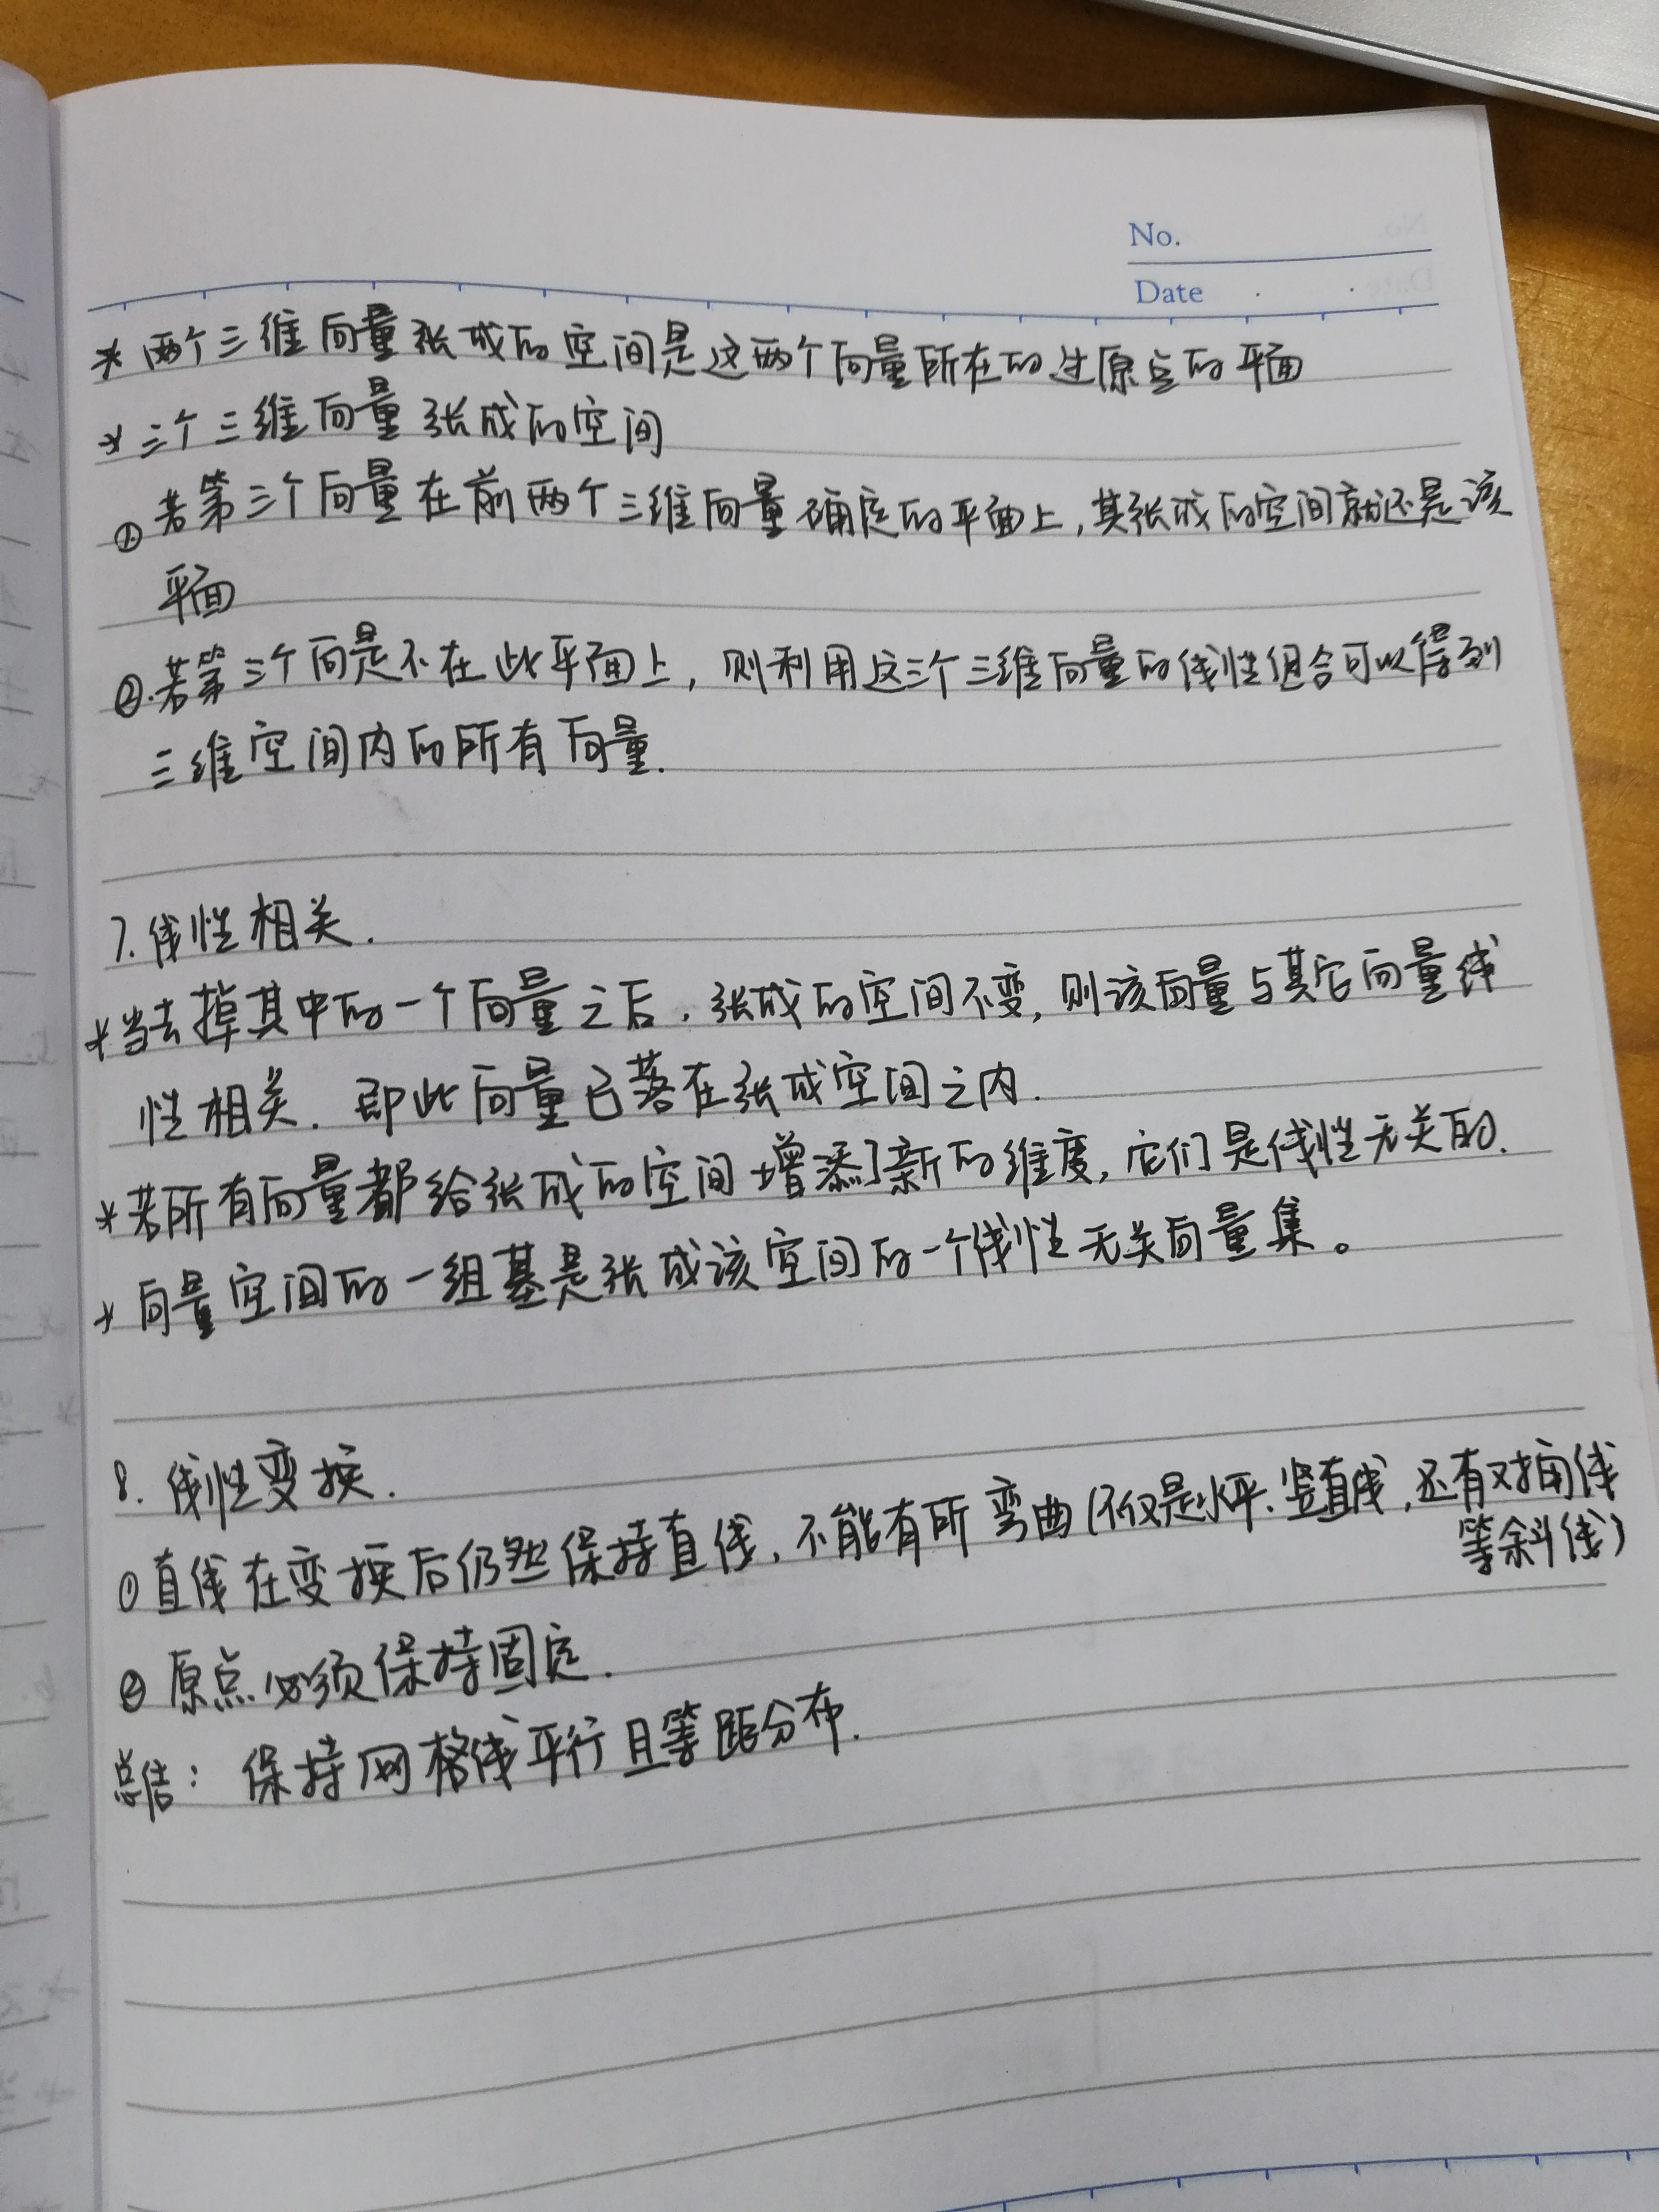 No.
Date
* 两个三维向量张成的空间是这两个向量所在的过原点的平面
* 三个三维向量张成的空间
① 若第三个向量在前两个三维向量确定的平面上,其张成的空间就还是该
平面
②.若第三个向量不在此平面上,则利用这三个三维向量的线性组合可以得到
三维空间内的所有向量.
7.线性相关.
*当去掉其中的一个向量之后,张成的空间不变,则该向量与其它向量线
性相关.即此向量已落在张成空间之内.
*若所有向量都给张成的空间增添了新的维度,它们是线性无关的.
* 向量空间的一组基是张成该空间的一个线性无关向量集。
8.线性变换.
①直线在变换后仍然保持直线,不能有所弯曲(不仅是水平、竖直线,还有对角线
等斜线)
② 原点必须保持固定.
总结: 保持网格线平行且等距分布.